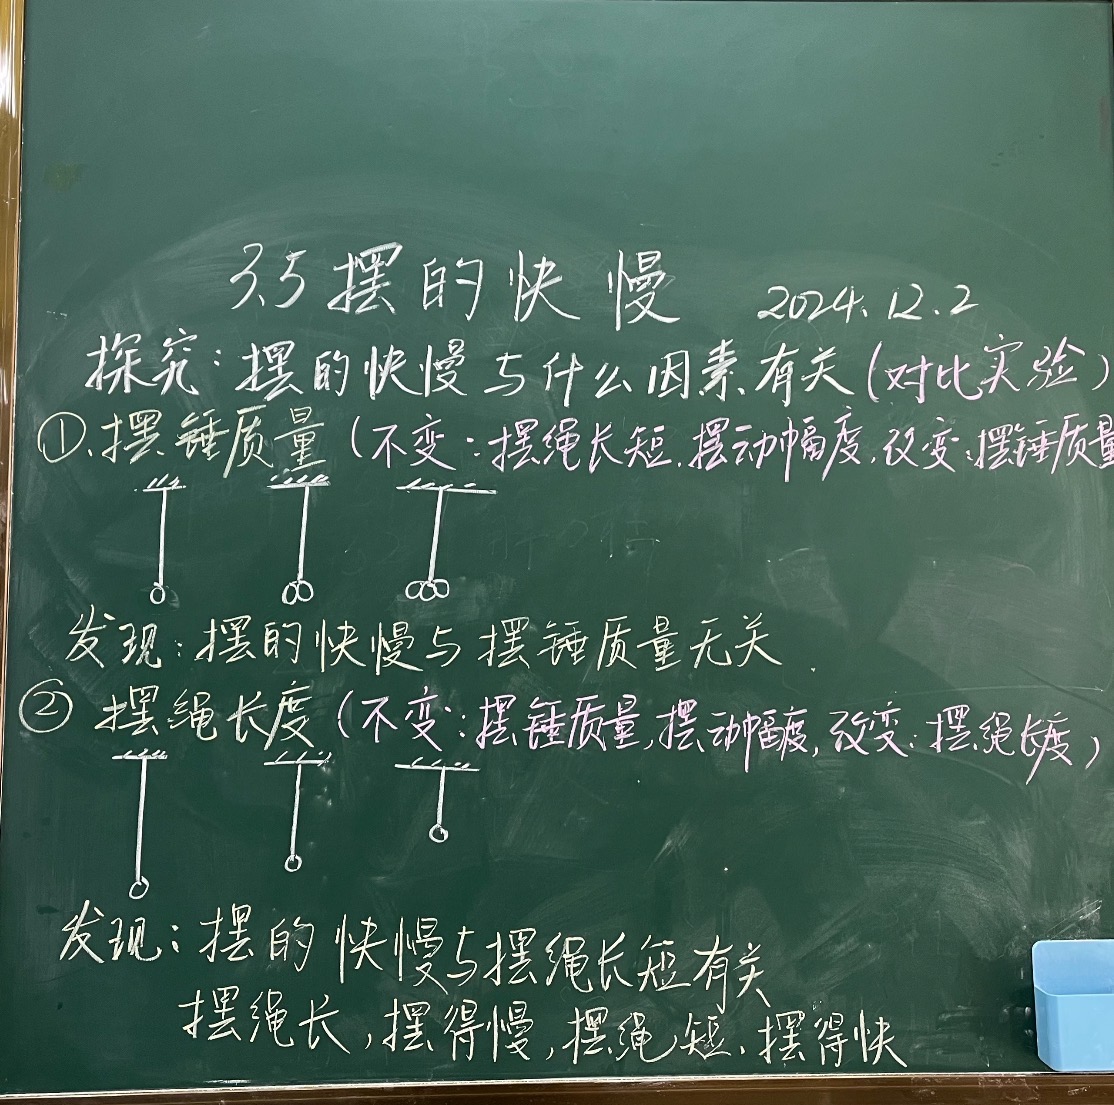 3.5摆的快慢 2024.12.2
探究:摆的快慢与什么因素有关(对比实验)
①.摆锤质量(不变:摆绳长短.摆动幅度,改变:摆锤质量
发现:摆的快慢与摆锤质量无关.
②摆绳长度(不变:摆锤质量,摆动幅度,改变:摆绳长度)
发现:摆的快慢与摆绳长短有关
摆绳长,摆得慢,摆绳短、摆得快